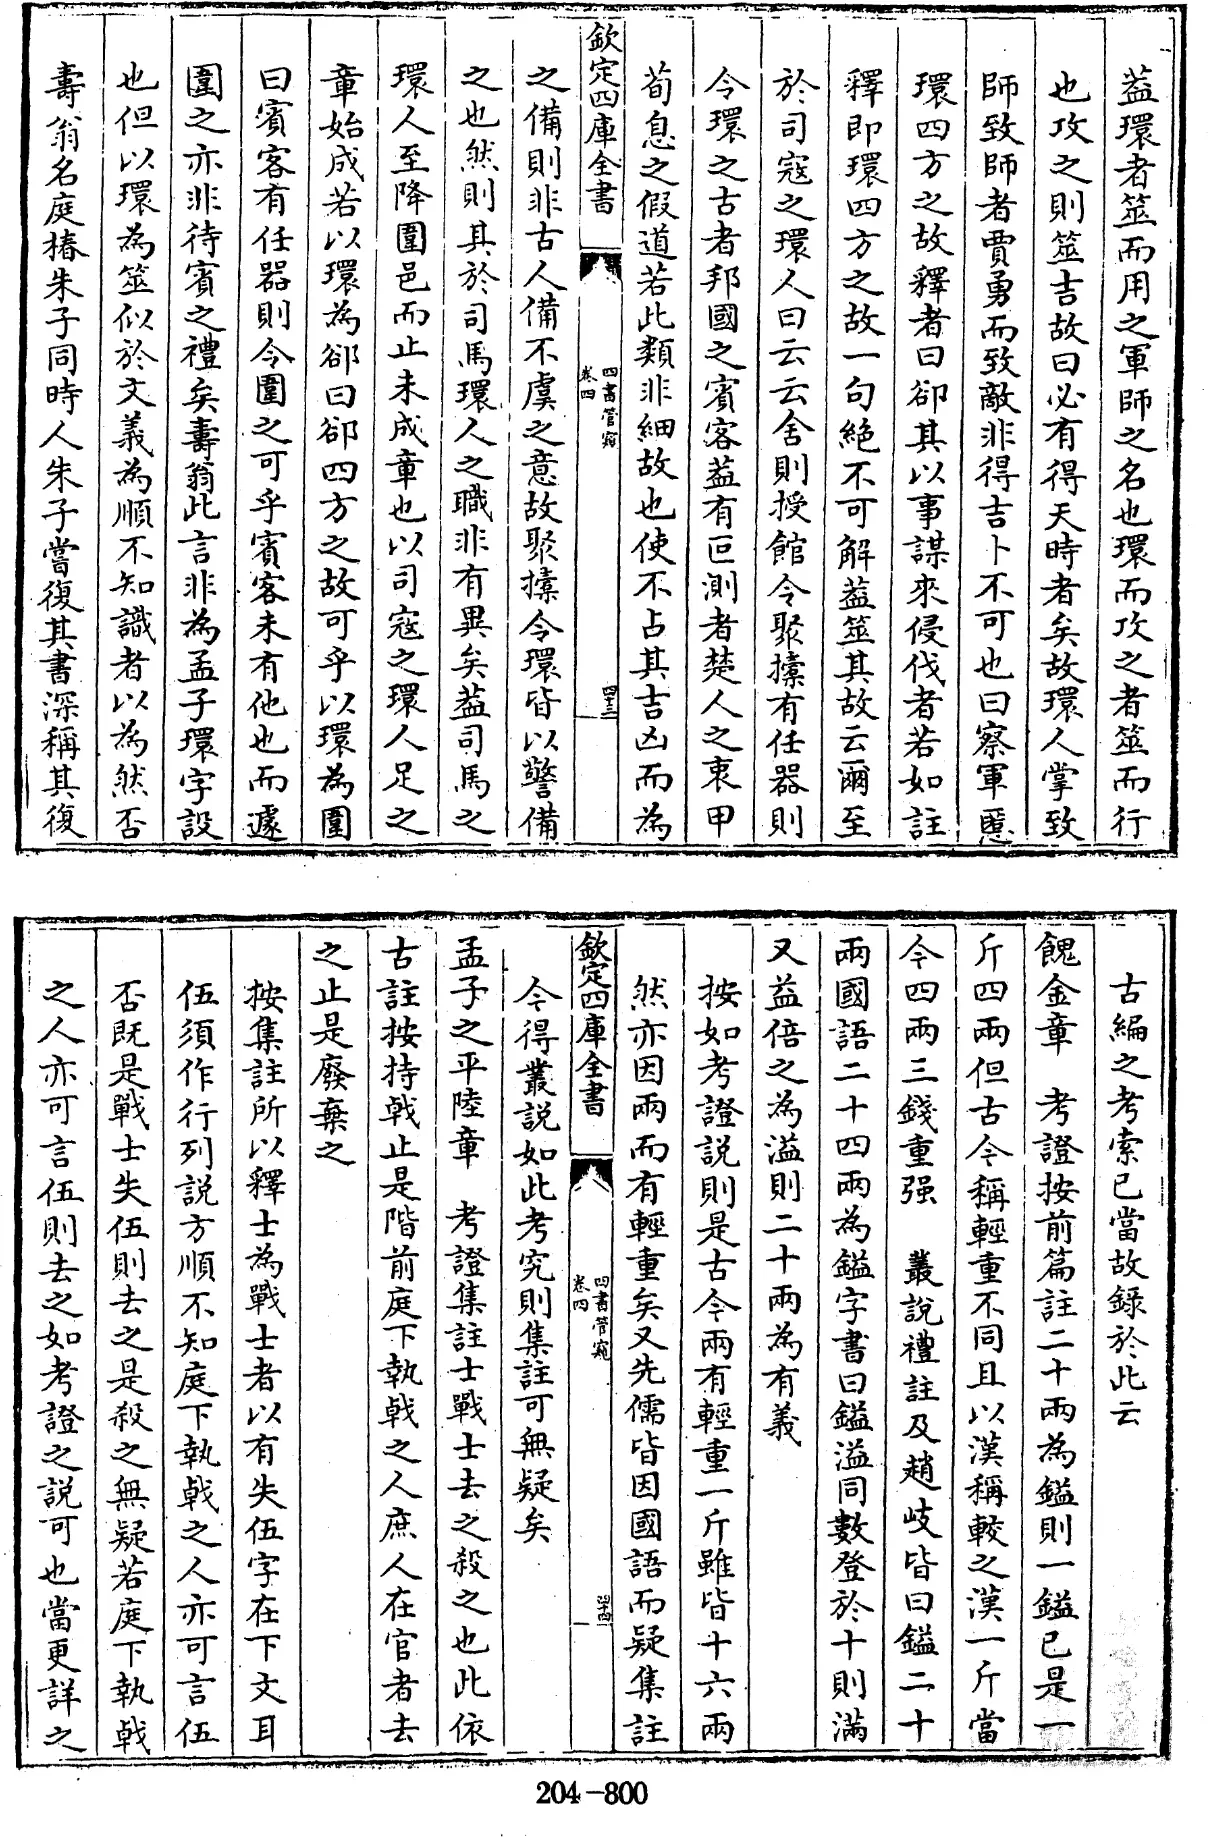 葢環者筮而用之軍師之名也環而攻之者筮而行
也攻之則筮吉故曰必有得天時者矣故環人掌致
師致師者賈勇而致敵非得吉卜不可也曰察軍慝
環四方之故釋者曰卻其以事謀來侵伐者若如註
釋即環四方之故一句絶不可解葢筮其故云爾至
於司寇之環人曰云云舍則授館令聚㯱有任器則
令環之古者邦國之賓客葢有叵測者楚人之衷甲
荀息之假道若此類非細故也使不占其吉凶而為
欽定四庫全書
四書管窺
卷四
四十三
之備則非古人備不虞之意故聚㯱令環皆以警備
之也然則其於司馬環人之職非有異矣葢司馬之
環人至降圍邑而止未成章也以司寇之環人足之
章始成若以環為卻曰卻四方之故可乎以環為圍
曰賓客有任器則令圍之可乎賓客未有他也而遽
圍之亦非待賓之禮矣壽翁此言非為孟子環字設
也但以環為筮似於文義為順不知識者以為然否
壽翁名庭椿朱子同時人朱子嘗復其書深稱其復
古編之考索已當故録於此云
餽金章 考證按前篇註二十兩為鎰則一鎰已是一
斤四兩但古今稱輕重不同且以漢稱較之漢一斤當
今四兩三錢重强 叢説禮註及趙岐皆曰鎰二十
兩國語二十四兩為鎰字書曰鎰溢同數登於十則滿
又益倍之為溢則二十兩為有義
按如考證説則是古今兩有輕重一斤雖皆十六兩
然亦因兩而有輕重矣又先儒皆因國語而疑集註
欽定四庫全書
四書管窺
卷四
四十四
今得叢説如此考究則集註可無疑矣
孟子之平陸章 考證集註士戰士去之殺之也此依
古註按持戟止是階前庭下執戟之人庶人在官者去
之止是廢棄之
按集註所以釋士為戰士者以有失伍字在下文耳
伍須作行列説方順不知庭下執戟之人亦可言伍
否既是戰士失伍則去之是殺之無疑若庭下執戟
之人亦可言伍則去之如考證之説可也當更詳之
204-800